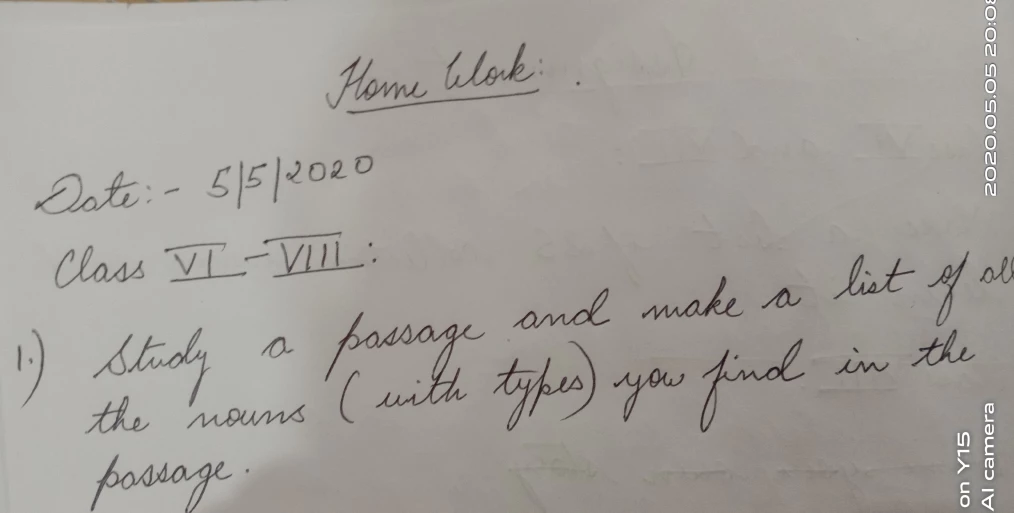 Home Work:
Date:- 5/5/2020
Class VI - VIII:
1.) Study a passage and make a list of all
the nouns (with types) you find in the
passage.
2020.05.05 20:08
on Y15
AI camera